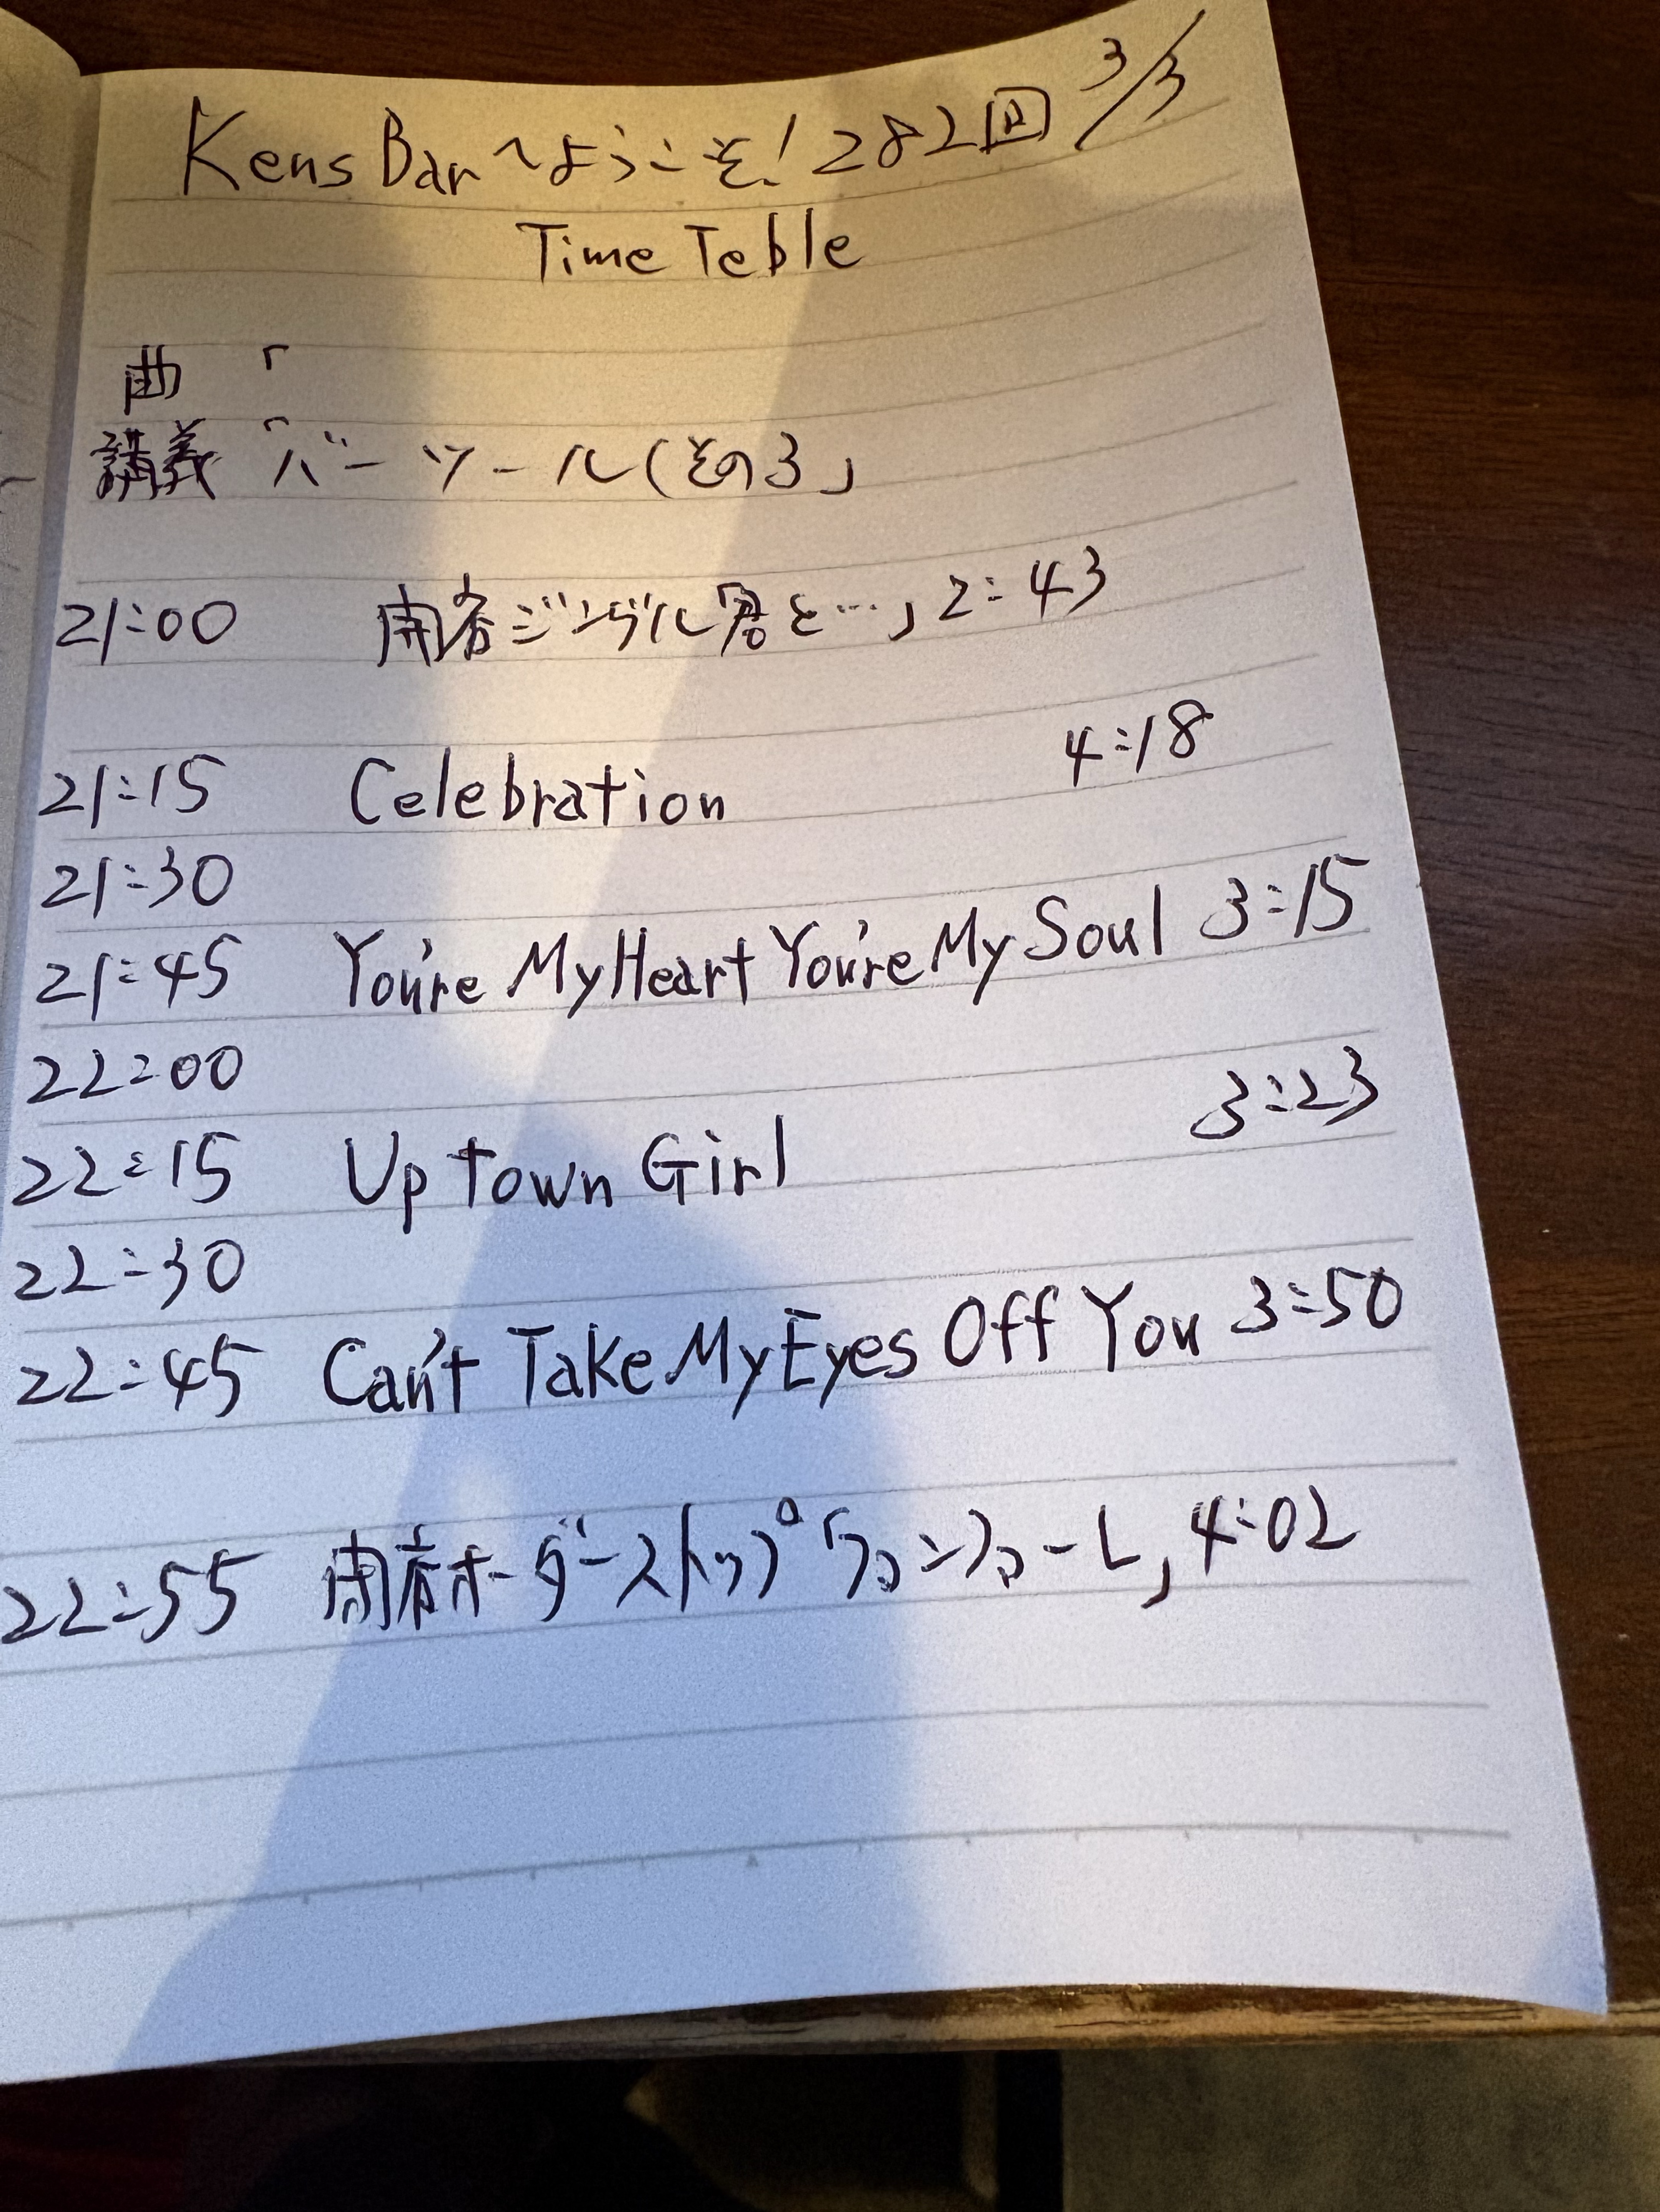 Kens Barへようこそ!282回 3/3
Time Teble
曲「
講義「バーツール(その3」
21:00 開店ジングル「君と…」2:43
21:15 Celebration 4:18
21:30
21:45 You're My Heart You're My Soul 3:15
22:00
22:15 Up town Girl 3:23
22:30
22:45 Can't Take My Eyes Off You 3:50
22:55 閉店オーダーストップ 4:02